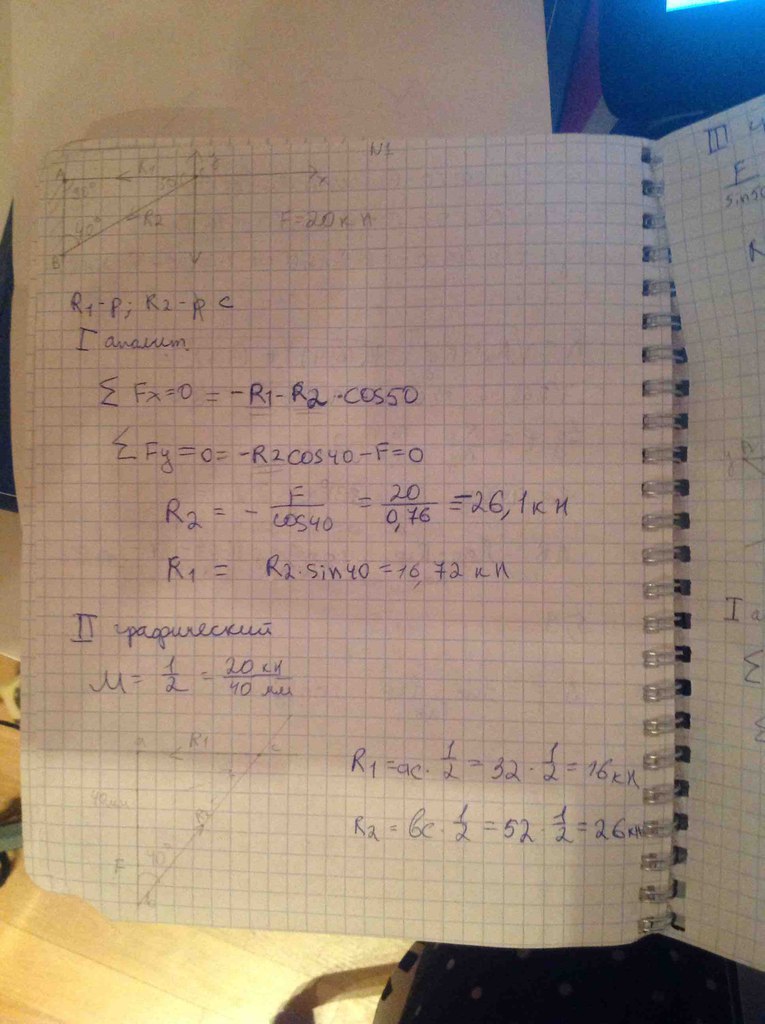 N1
A R1 x
90°
40° R2 F=20кН
B
R1-р; R2-р с
I аналит.
Σ Fx=0 = -R1-R2·cos50
Σ Fy=0= -R2cos40-F=0
R2 = - F/cos40 = 20/0,76 = -26,1кН
R1 = R2·sin40=16,72 кН
II графический
M= 1/2 = 20 кН/40 мм
a R1 c
40мм
R1=ac·1/2=32·1/2=16кН
R2=bc·1/2=52·1/2=26кН
F 40
III
F/sin50
I а
Σ
Σ